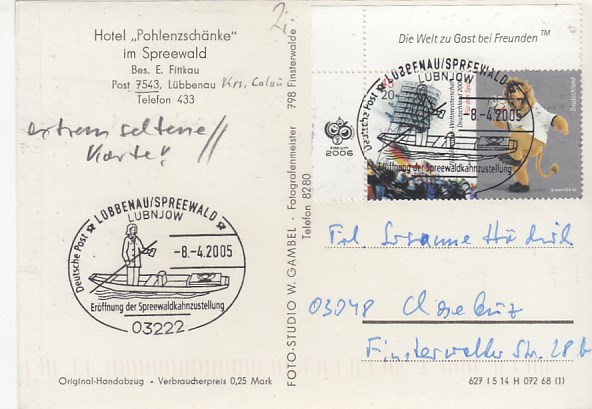 2;
Hotel „Pohlenzschänke"
im Spreewald
Bes. E. Fittkau
Post 7543, Lübbenau Krs. Calau
Telefon 433
extrem seltene
Karte!
Deutsche Post LÜBBENAU/SPREEWALD
LUBNJOW
-8.-4.2005
Eröffnung der Spreewaldkahnzustellung
03222
Original-Handabzug - Verbraucherpreis 0,25 Mark
FOTO-STUDIO W. GAMBEL - Fotografenmeister 798 Finsterwalde -
Telefon 8280
Die Welt zu Gast bei Freunden™
Deutsche Post LÜBBENAU/SPREEWALD
LUBNJOW
-8.-4.2005
Eröffnung der Spreewaldkahnzustellung
20
Deutschland
2006
Frl. Susanne
03048
Finsterwalder Str. 28b
627 I 5 14 H 072 68 (1)